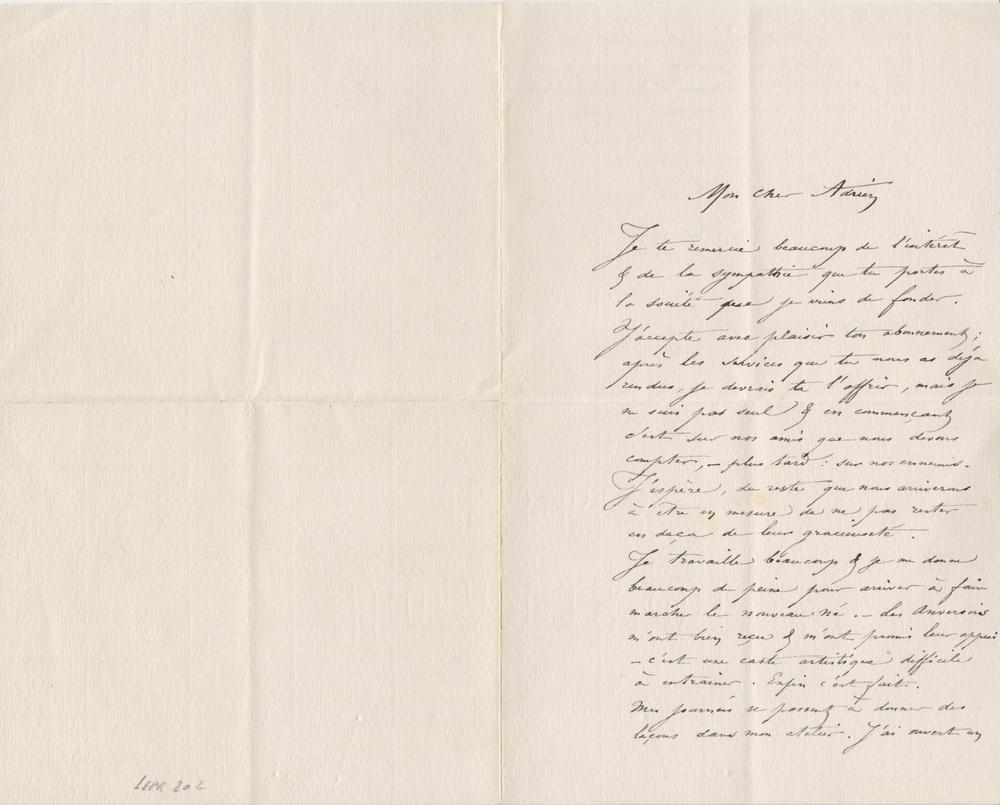 Mon cher Adrien
Je te remercie beaucoup de l'intérêt
& de la sympathie que tu portes à
la société que je viens de fonder.
J'accepte avec plaisir ton abonnement ;
après les services que tu nous as déjà
rendus, je devrais te l'offrir, mais je
ne suis pas seul & en commençant
c'est sur nos amis que nous devons
compter, – plus tard : sur nos ennemis.
J'espère, du reste que nous arriverons
à être en mesure de ne pas rester
en deça de leur gracieuseté.
Je travaille beaucoup & je me donne
beaucoup de peine pour arriver à faire
marcher le nouveau né. – Les Anversois
m'ont bien reçu & m'ont promis leur appui
– c'est une caste artistique difficile
à entrainer. Enfin c'est fait.
Mes journées se passent à donner des
leçons dans mon atelier. J'ai ouvert un
LEPR 202